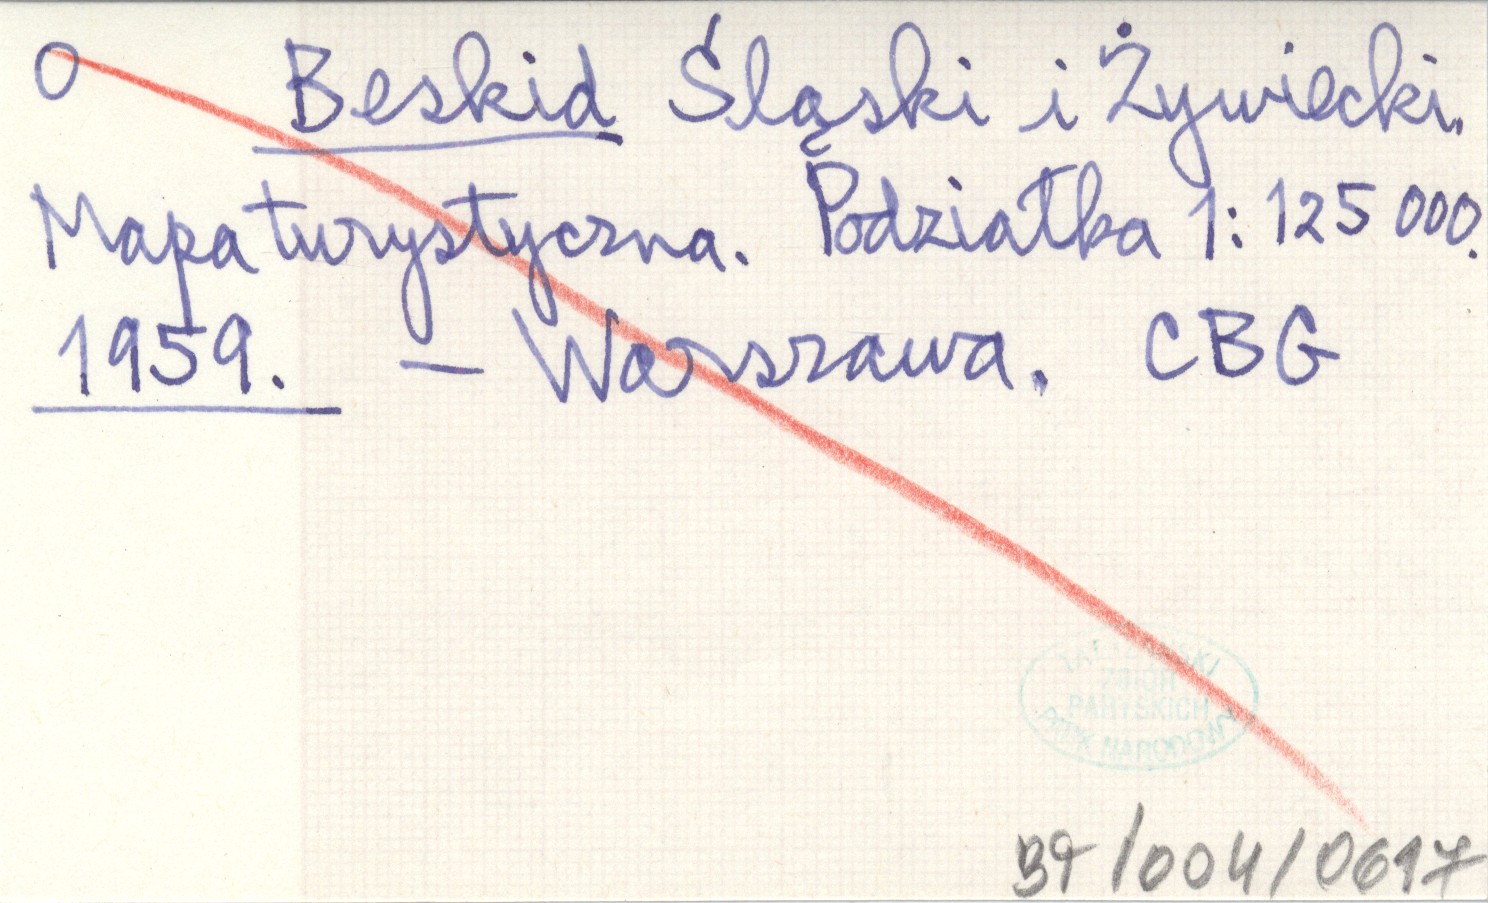 O Beskid Śląski i Żywiecki.
Mapa turystyczna. Podziałka 1:125 000.
1959. — Warszawa. CBG
TATRZAŃSKI
ZBIÓR
PARYSKICH
PARK NARODOWY
39/004/0617